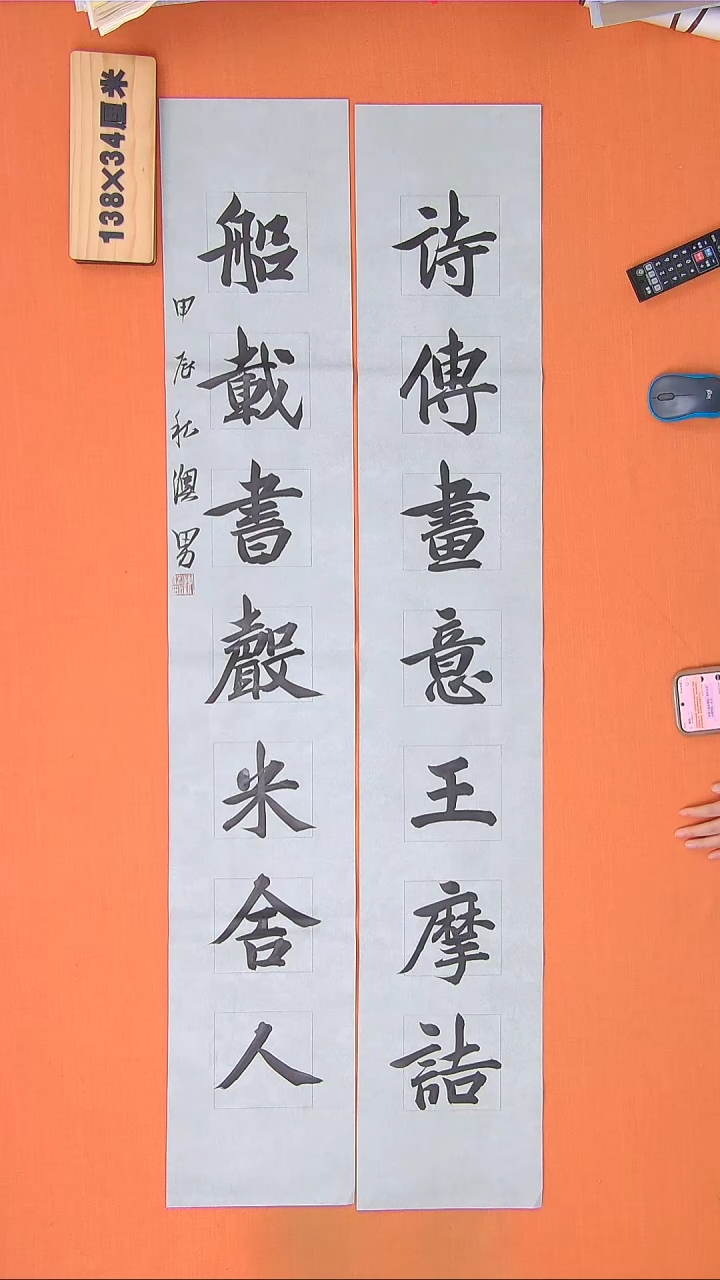 詩傳畫意王摩詰
船載書聲米舍人
甲辰秋澳男
138×34厘米